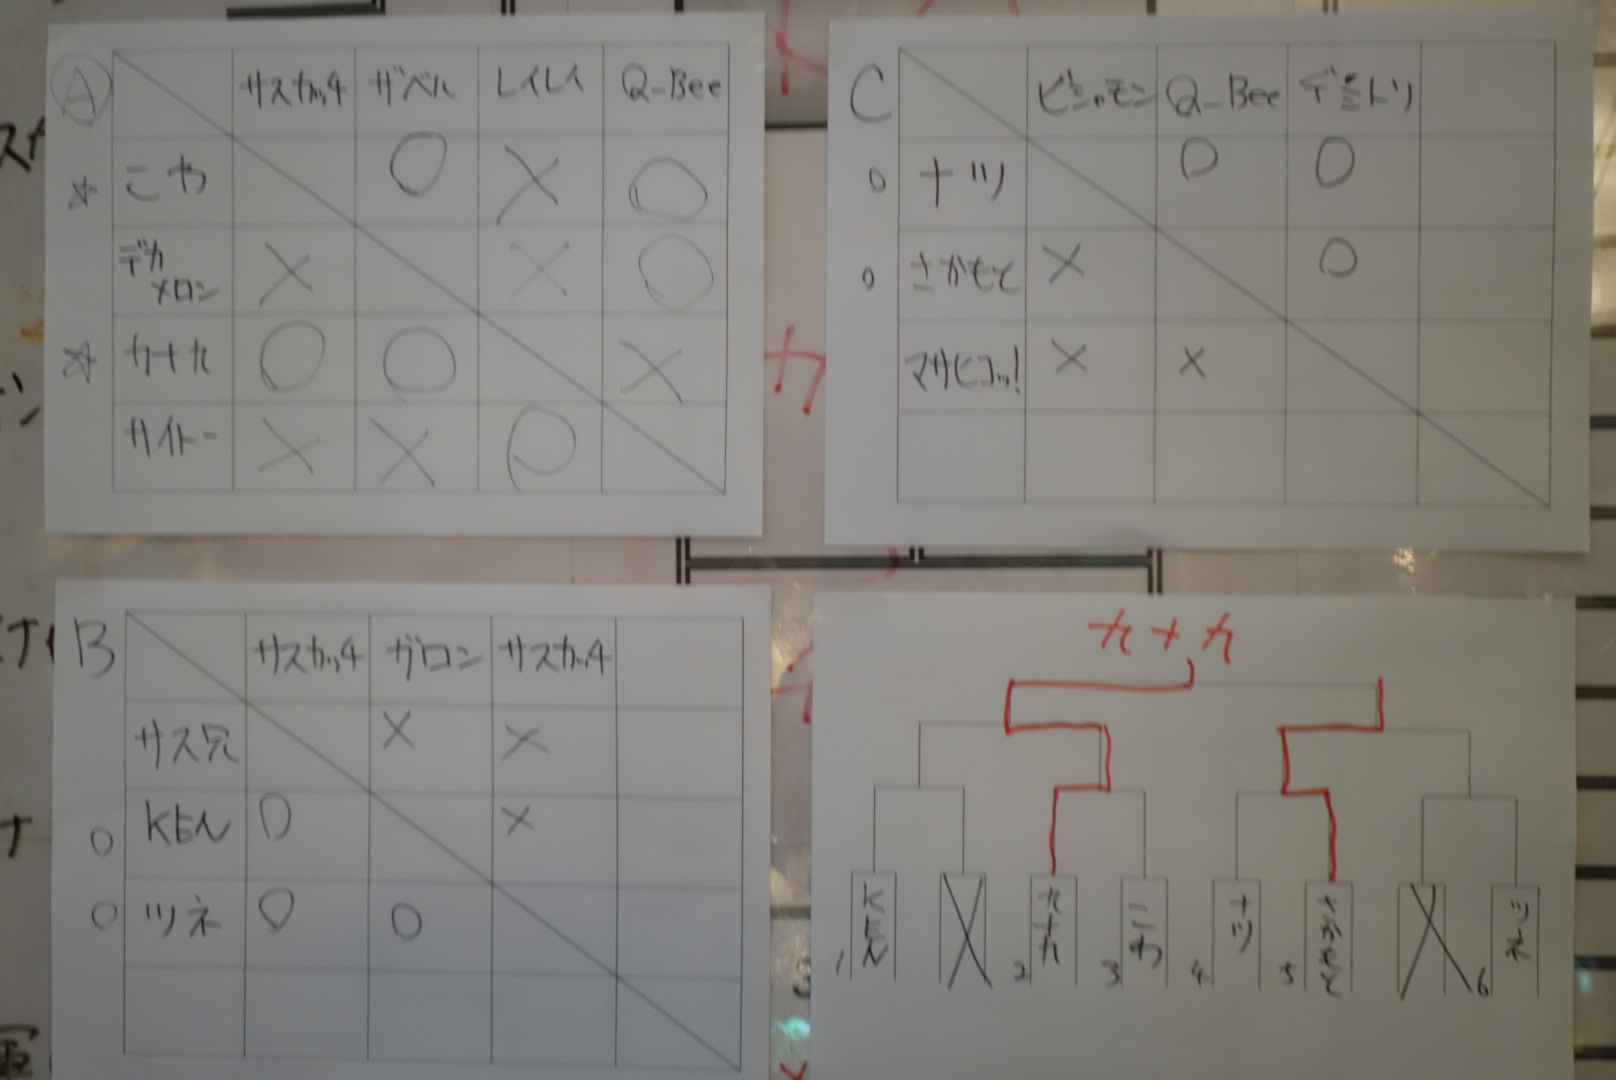 A
サスカッチ ザベル レイレイ Q-Bee
☆ こわ ○ X ○
デカ
メロン X X ○
☆ カナカ ○ ○ X
サイトー X X ○
C
ビシャモン Q-Bee デミトリ
○ ナツ ○ ○
○ さかもと X ○
マサヒコッ! X X
B
サスカッチ ガロン サスカッチ
サス兄 X X
○ KEN ○ X
○ ツネ ○ ○
カナカ
1 KEN
X
2 カナカ
3 こわ
4 ナツ
5 さかもと
X
6 ツネ